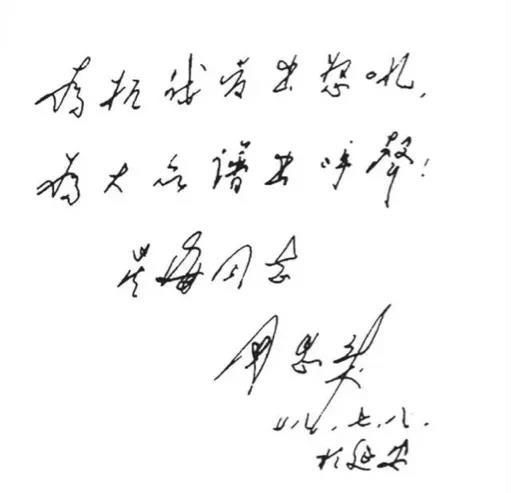 為抗战发出怒吼，
為大众谱出呼声！
星海同志
周恩来
廿八．七．八．
於延安